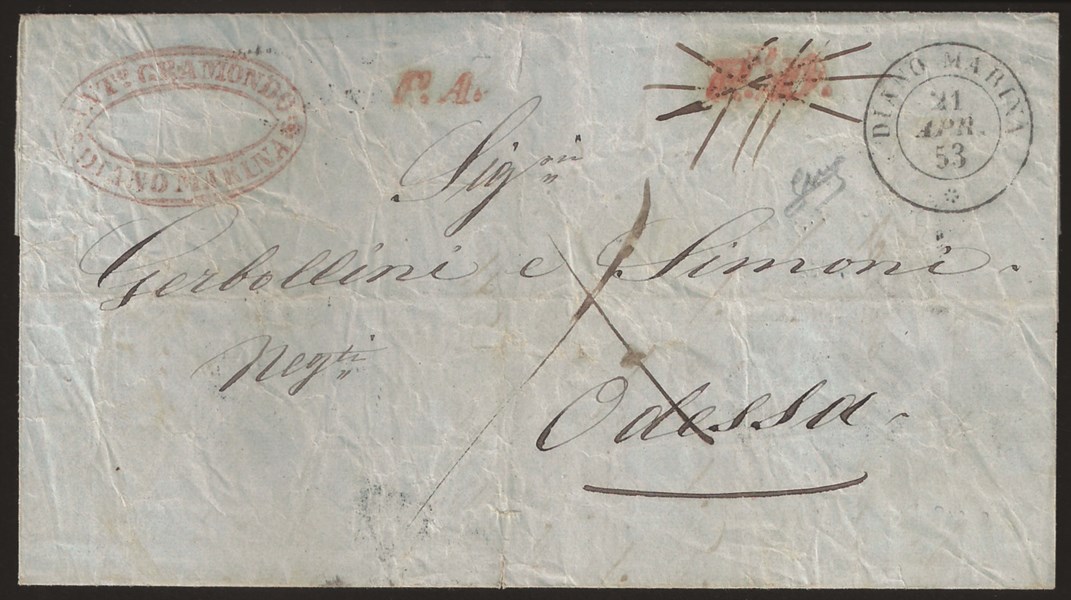 GRAMONDO
DIANO MARINA
P. A.
DIANO MARINA
21
APR.
53
Sig.ri
Gerbollini e Simoni.
Neg.ti
Odessa.